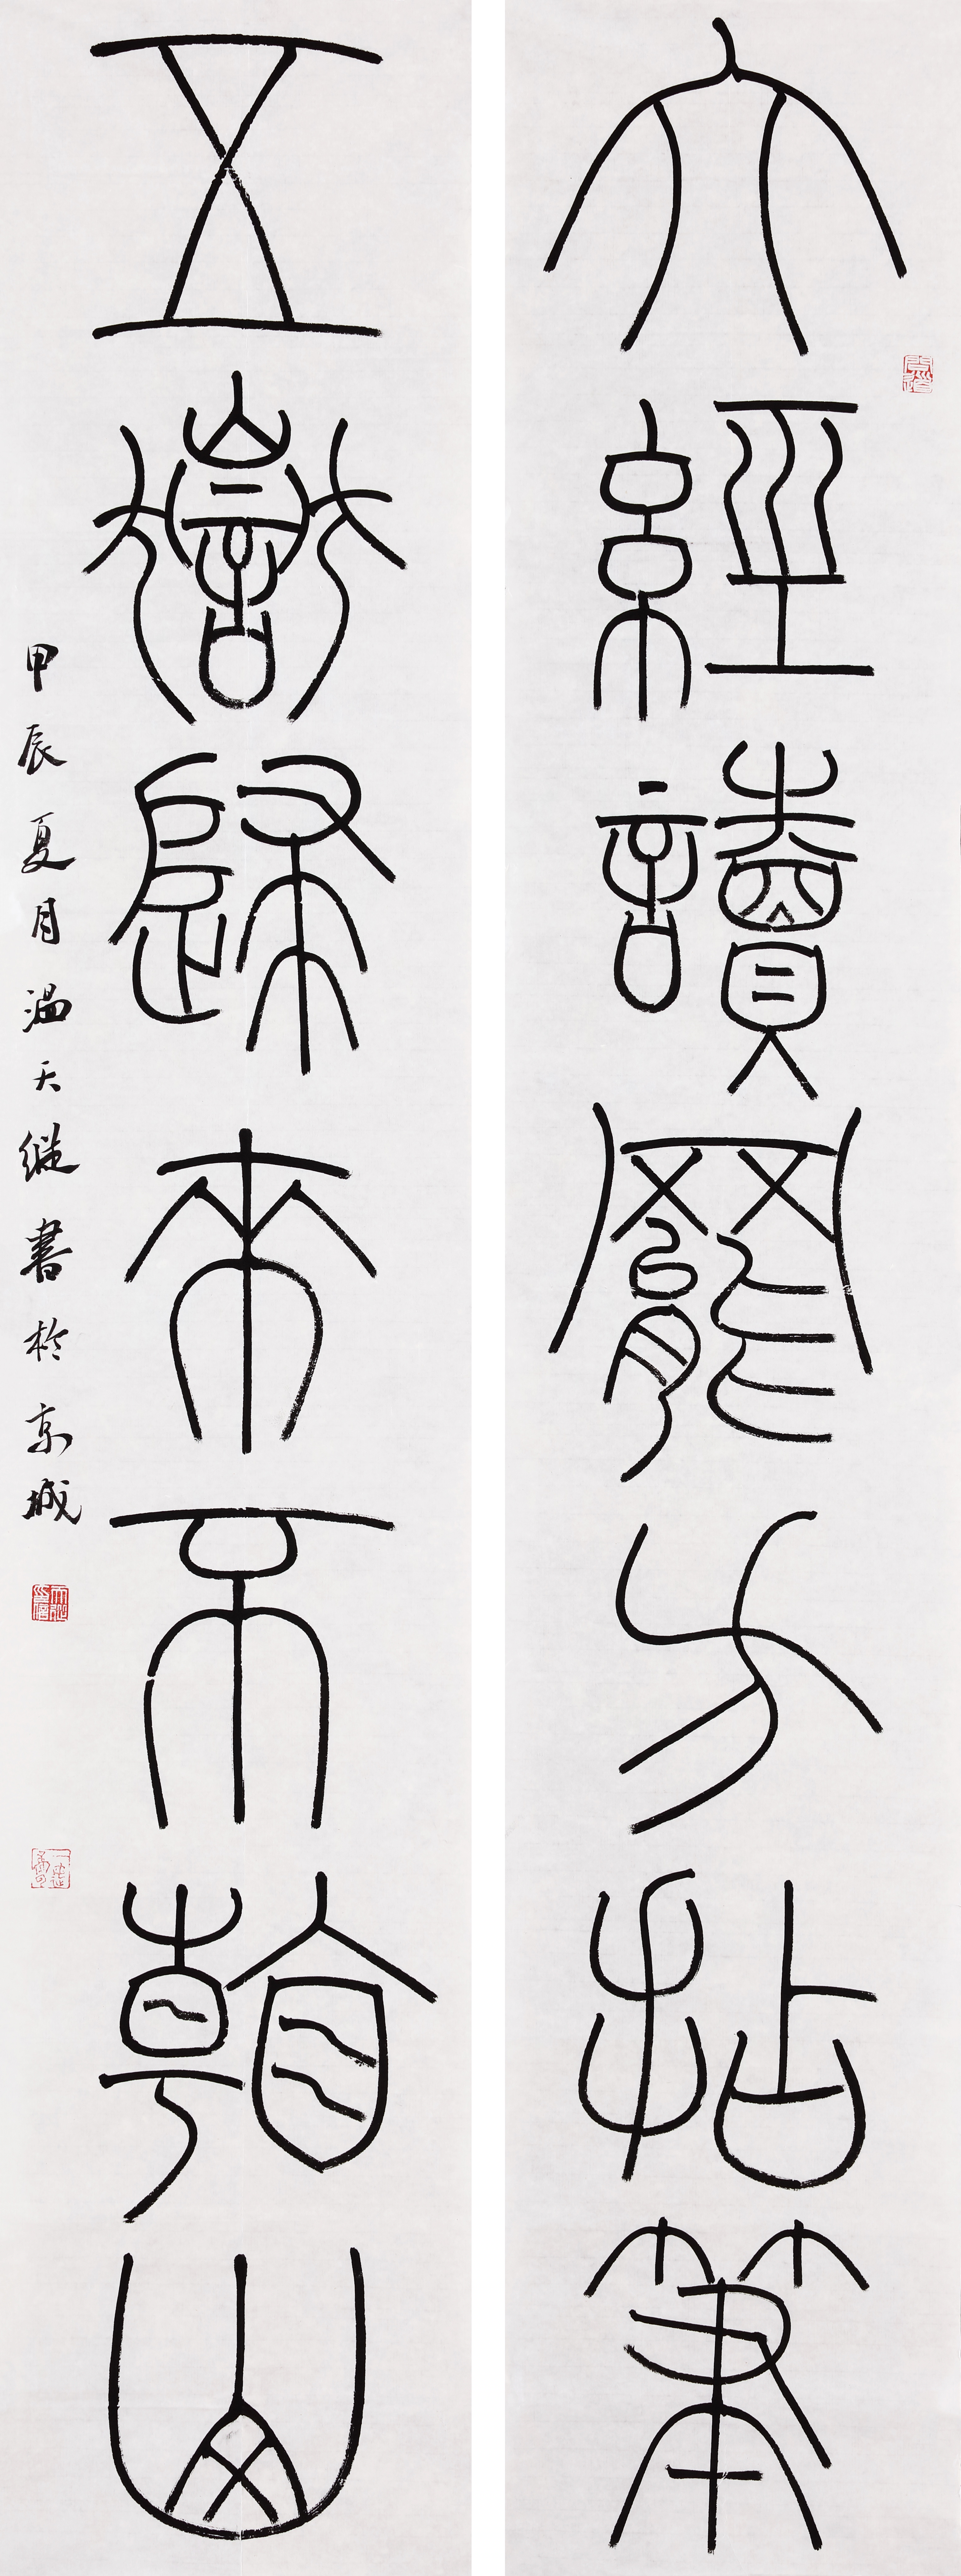 六經讀罷方拈筆
五嶽歸來不看山
甲辰夏月温天縱書於京城